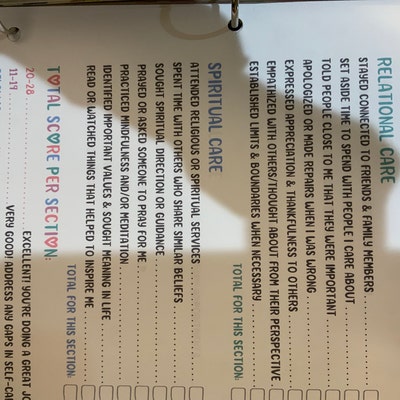 RELATIONAL CARE
STAYED CONNECTED TO FRIENDS & FAMILY MEMBERS
SET ASIDE TIME TO SPEND WITH PEOPLE I CARE ABOUT
TOLD PEOPLE CLOSE TO ME THAT THEY WERE IMPORTANT
APOLOGIZED OR MADE REPAIRS WHEN I WAS WRONG
EXPRESSED APPRECIATION & THANKFULNESS TO OTHERS
EMPATHIZED WITH OTHERS/THOUGHT ABOUT FROM THEIR PERSPECTIVE
ESTABLISHED LIMITS & BOUNDARIES WHEN NECESSARY
TOTAL FOR THIS SECTION:
SPIRITUAL CARE
ATTENDED RELIGIOUS OR SPIRITUAL SERVICES
SPENT TIME WITH OTHERS WHO SHARE SIMILAR BELIEFS
SOUGHT SPIRITUAL DIRECTION OR GUIDANCE
PRAYED OR ASKED SOMEONE TO PRAY FOR ME
PRACTICED MINDFULNESS AND/OR MEDITATION
IDENTIFIED IMPORTANT VALUES & SOUGHT MEANING IN LIFE
READ OR WATCHED THINGS THAT HELPED TO INSPIRE ME
TOTAL FOR THIS SECTION:
TOTAL SCORE PER SECTION:
20-28 EXCELLENT! YOU'RE DOING A GREAT
11-19 VERY GOOD! ADDRESS ANY GAPS IN SELF-CAR